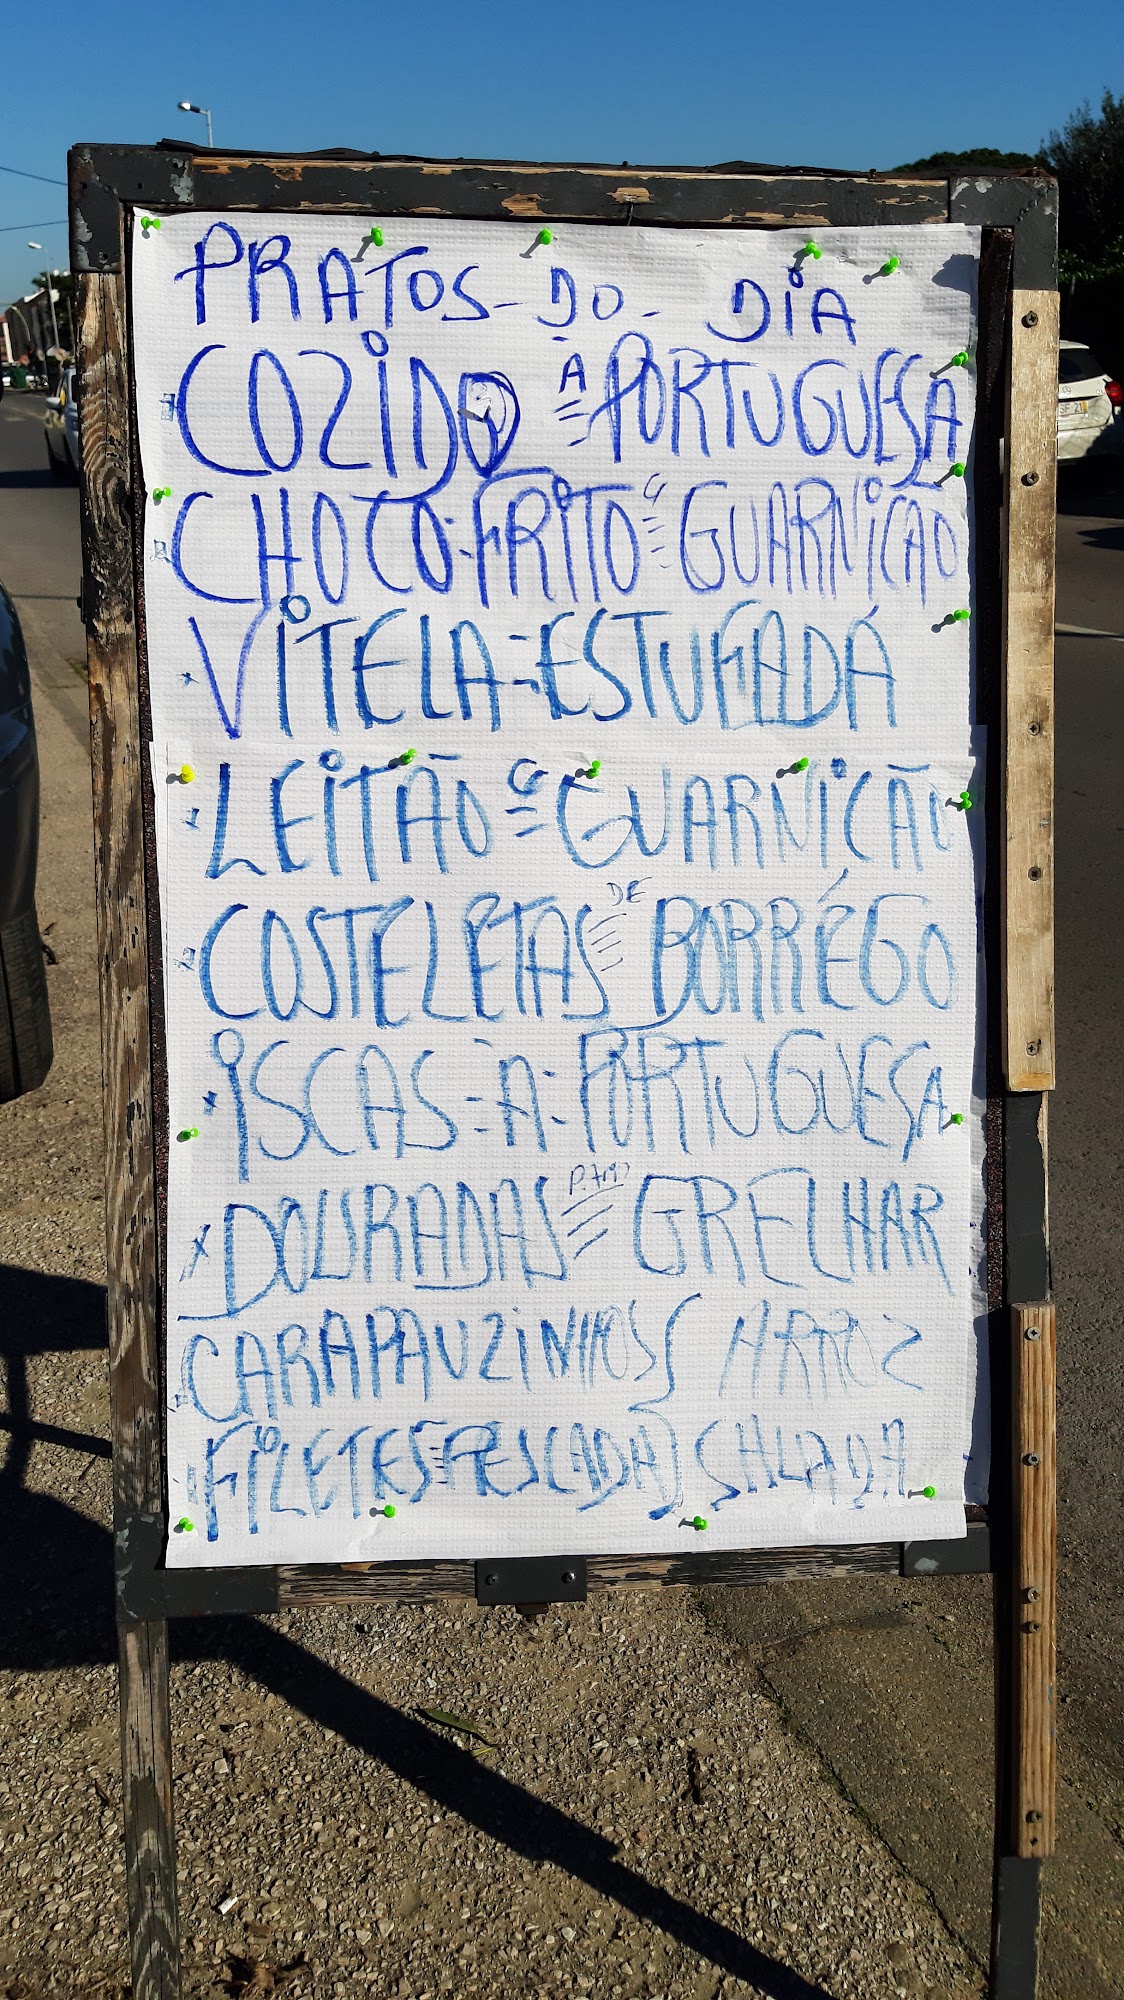 PRATOS - DO - DIA
COZIDO À PORTUGUESA
CHOCO-FRITO C GUARNIÇÃO
VITELA-ESTUFADA
LEITÃO C GUARNIÇÃO
COSTELETAS DE BORRÉGO
ISCAS-À-PORTUGUESA
DOURADAS PARA GRELHAR
CARAPAUZINHOS ARROZ
FILETES=PESCADA SALADA